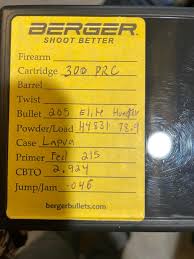 BERGER
SHOOT BETTER
Firearm
Cartridge 300 PRC
Barrel
Twist
Bullet 205 Elite Hunter
Powder/Load H4831 78.9
Case Lapua
Primer Fed 215
CBTO 2.924
Jump/Jam -.046
bergerbullets.com